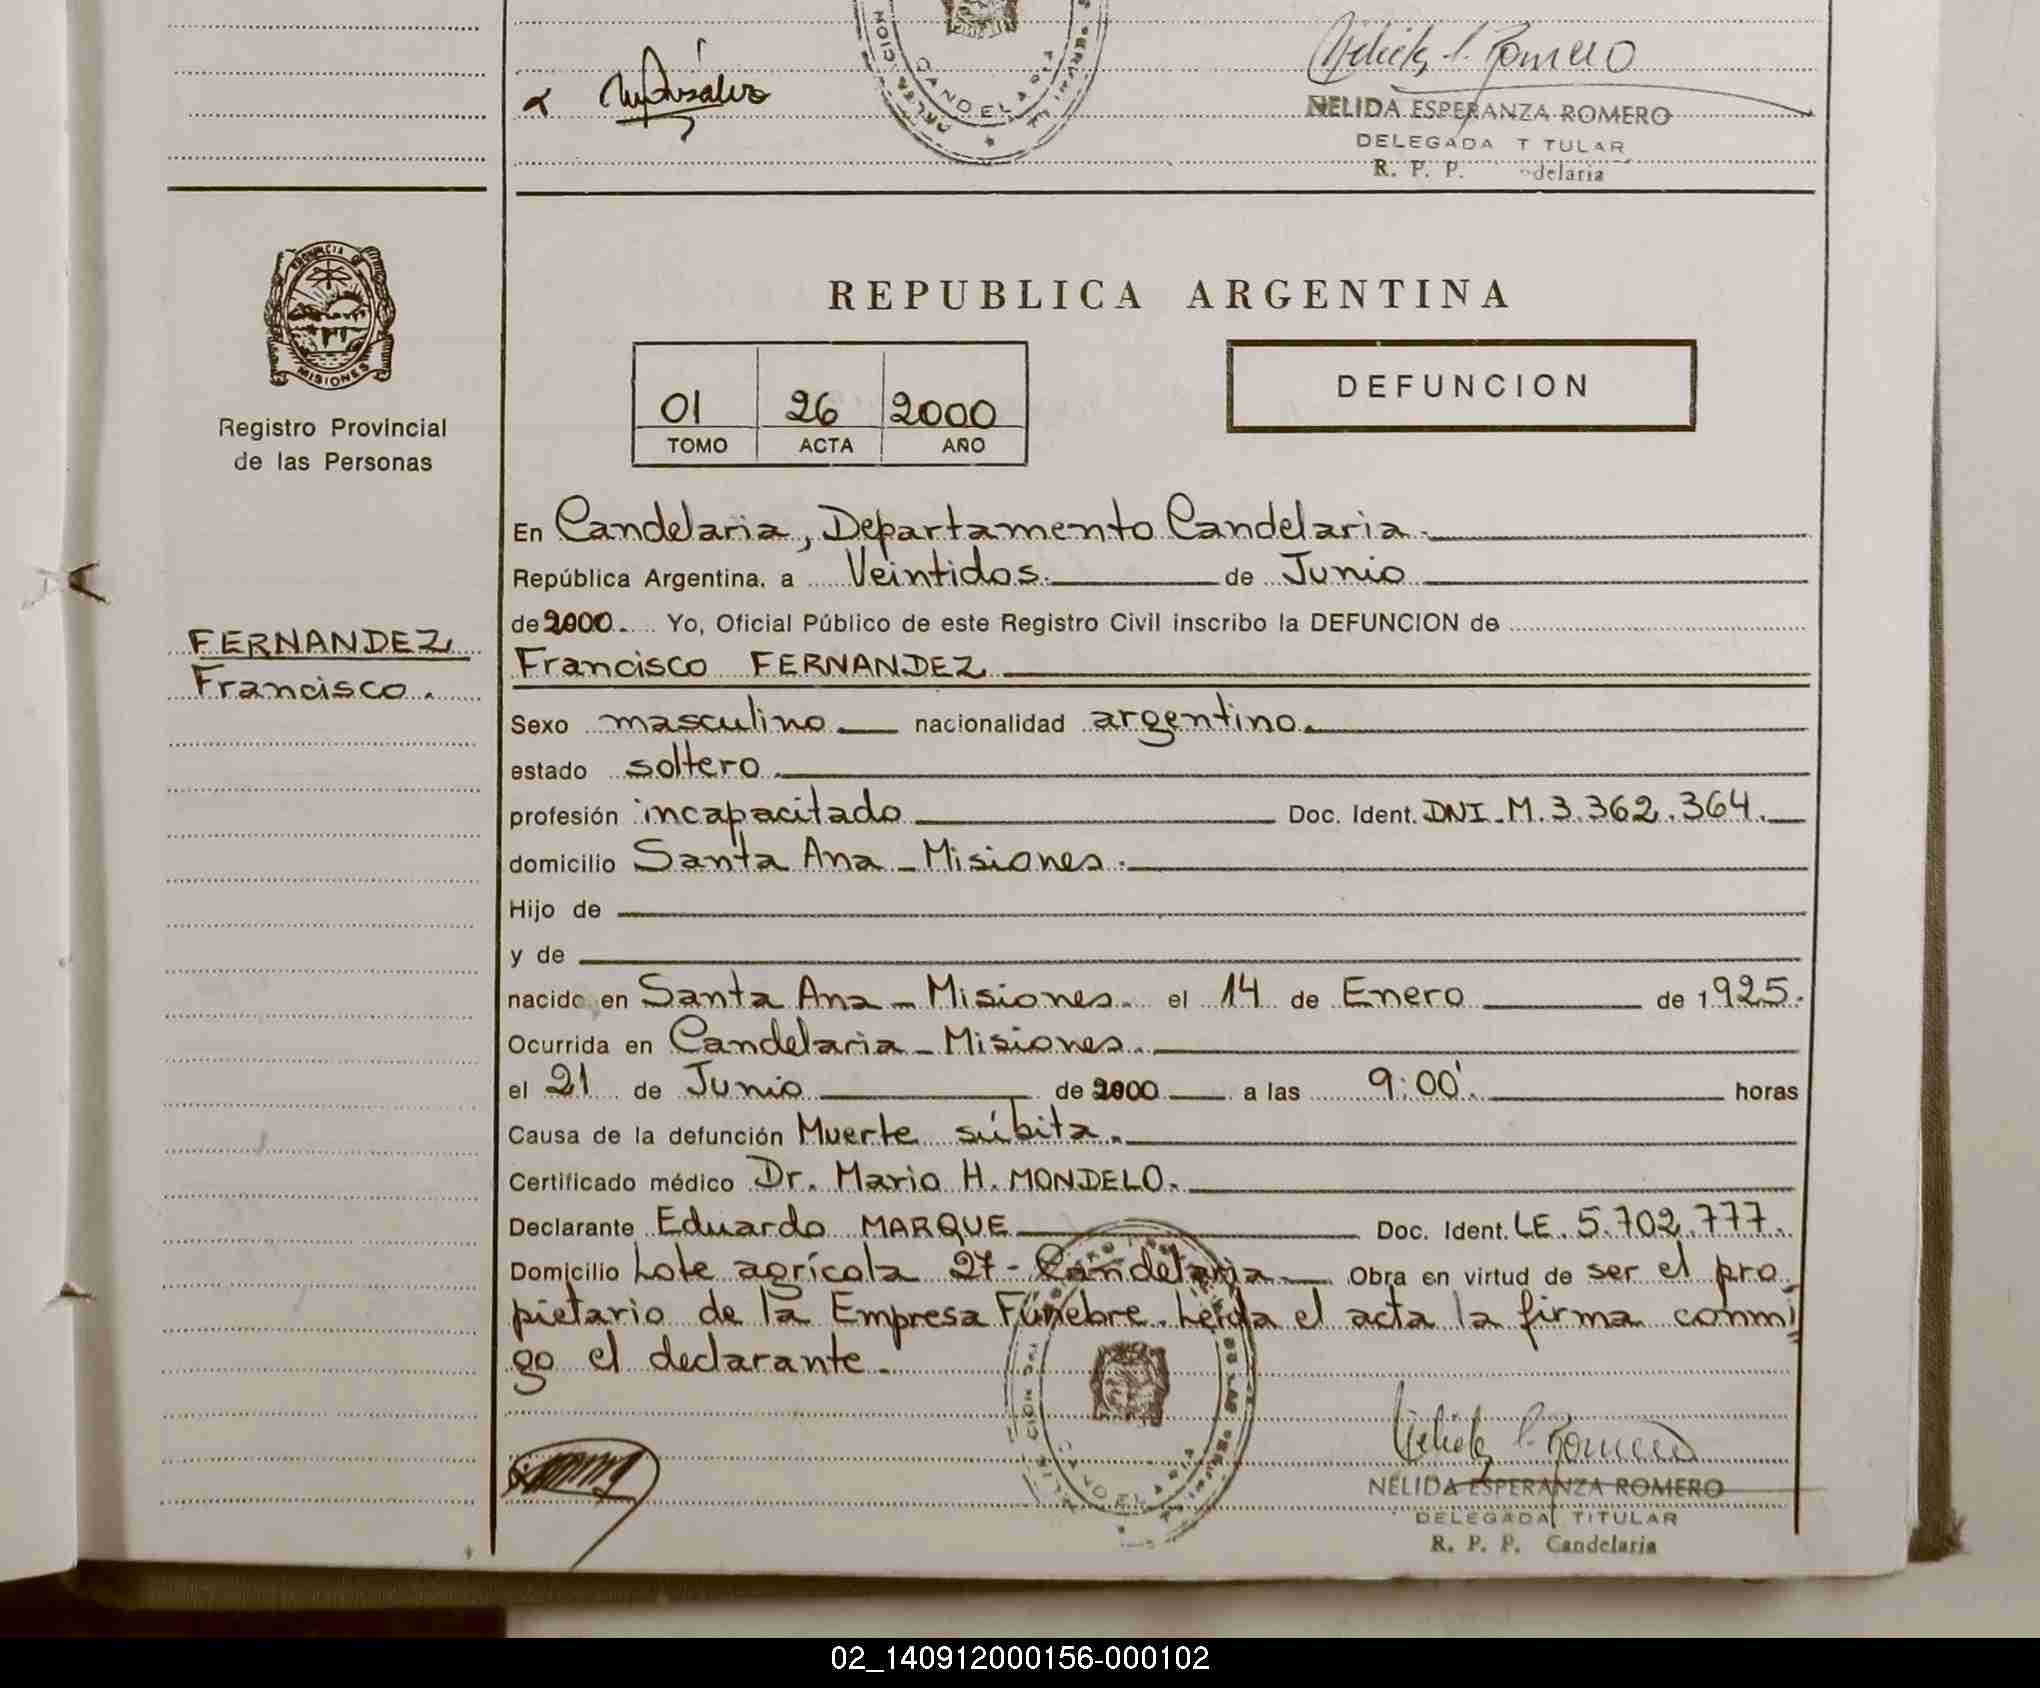 NELIDA ESPERANZA ROMERO
DELEGADA T TULAR
R. P. P. delaria
CANDELARIA
PROVINCIA DE
MISIONES
Registro Provincial
de las Personas
REPUBLICA ARGENTINA
01 26 2000
TOMO ACTA AÑO
DEFUNCION
En Candelaria, Departamento Candelaria.
República Argentina, a Veintidos. de Junio
de 2000. Yo, Oficial Público de este Registro Civil inscribo la DEFUNCION de
FERNANDEZ
Francisco.
Francisco FERNANDEZ
Sexo masculino nacionalidad argentino.
estado soltero
profesión incapacitado Doc. Ident. DNI. M. 3.362.364.
domicilio Santa Ana - Misiones.
Hijo de
y de
nacido en Santa Ana - Misiones. el 14 de Enero de 1925.
Ocurrida en Candelaria - Misiones.
el 21 de Junio de 2000 a las 9:00'. horas
Causa de la defunción Muerte súbita.
Certificado médico Dr. Mario H. MONDELO.
Declarante Eduardo MARQUE Doc. Ident. LE. 5.702.777.
Domicilio Lote agrícola 27 - Candelaria Obra en virtud de ser el pro
pietario de la Empresa Fúnebre. Leída el acta la firma conmi
go el declarante.
CANDELARIA
NELIDA ESPERANZA ROMERO
DELEGADA TITULAR
R. P. P. Candelaria
02_140912000156-000102